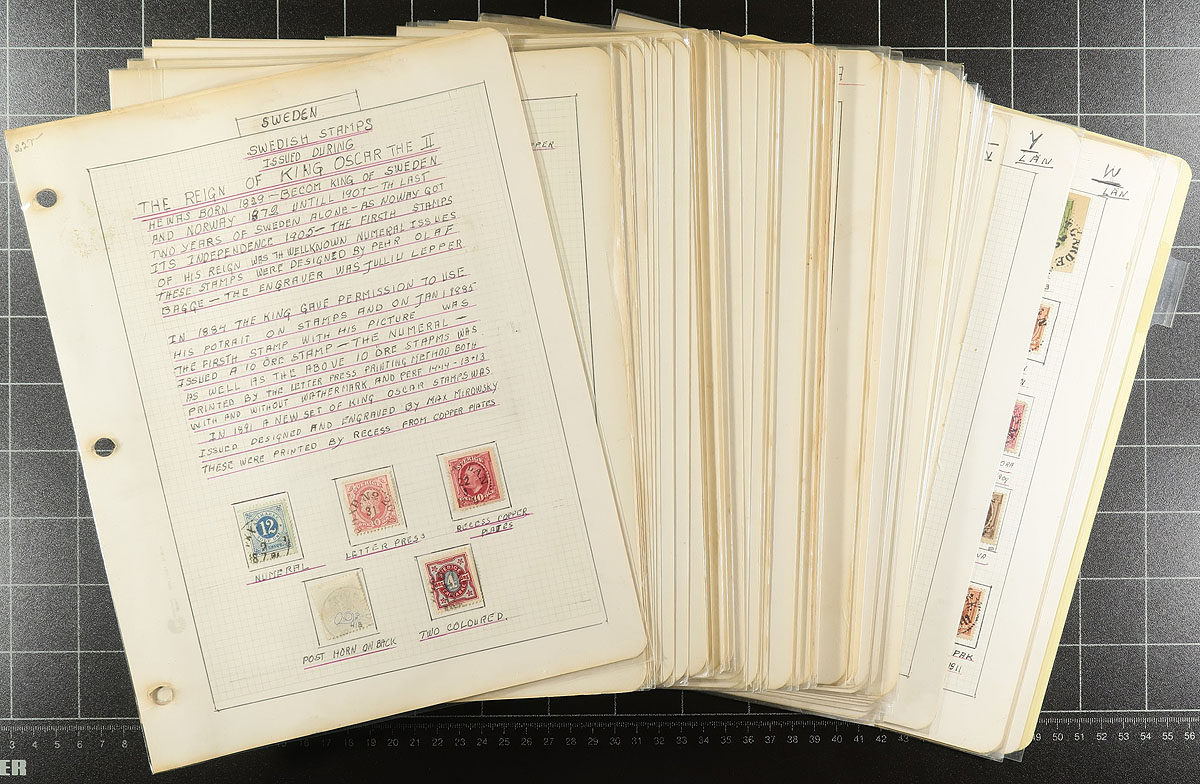 227
SWEDEN
SWEDISH STAMPS
ISSUED DURING
THE REIGN OF KING OSCAR THE II
HE WAS BORN 1829 – BECOM KING OF SWEDEN
AND NORWAY 1872 UNTILL 1907 – TH LAST
TWO YEARS OF SWEDEN ALONE – AS NOWAY GOT
ITS INDEPENDENCE 1905 – THE FIRSTH STAMPS
OF HIS REIGN WAS TH WELLKNOWN NUMERAL ISSUES
THESE STAMPS WERE DESIGNED BY PEHR OLAF
BAGGE – THE ENGRAVER WAS JULLIU LEPPER
IN 1884 THE KING GAVE PERMISSION TO USE
HIS POTRAIT ON STAMPS AND ON JAN 1 1885
THE FIRSTH STAMP WITH HIS PICTURE WAS
ISSUED A 10 ÖRE STAMP – THE NUMERAL –
AS WELL AS THE ABOVE 10 ÖRE STAPMS WAS
PRINTED BY THE LETTER PRESS PRINTING METHOD BOTH
WITH AND WITHOUT WATHERMARK AND PERF 14·14 – 13·13
IN 1891 A NEW SET OF KING OSCAR STAMPS WAS
ISSUED DESIGNED AND ENGRAVED BY MAX MIROWSKY
THESE WERE PRINTED BY RECESS FROM COPPER PLATES
12
NUMERAL
LETTER PRESS
10
RECESS COPPER
PLATES
POST HORN ON BACK
4
TWO COLOURED.
PPER
7
Y
LÄN
W
LÄN
GARDE
PRK
1911
3 4 5 6 7 8 18 19 20 21 22 23 24 25 26 27 28 29 30 31 32 33 34 35 36 37 38 39 40 41 42 43 49 50 51 52 53 54 55 56
ER